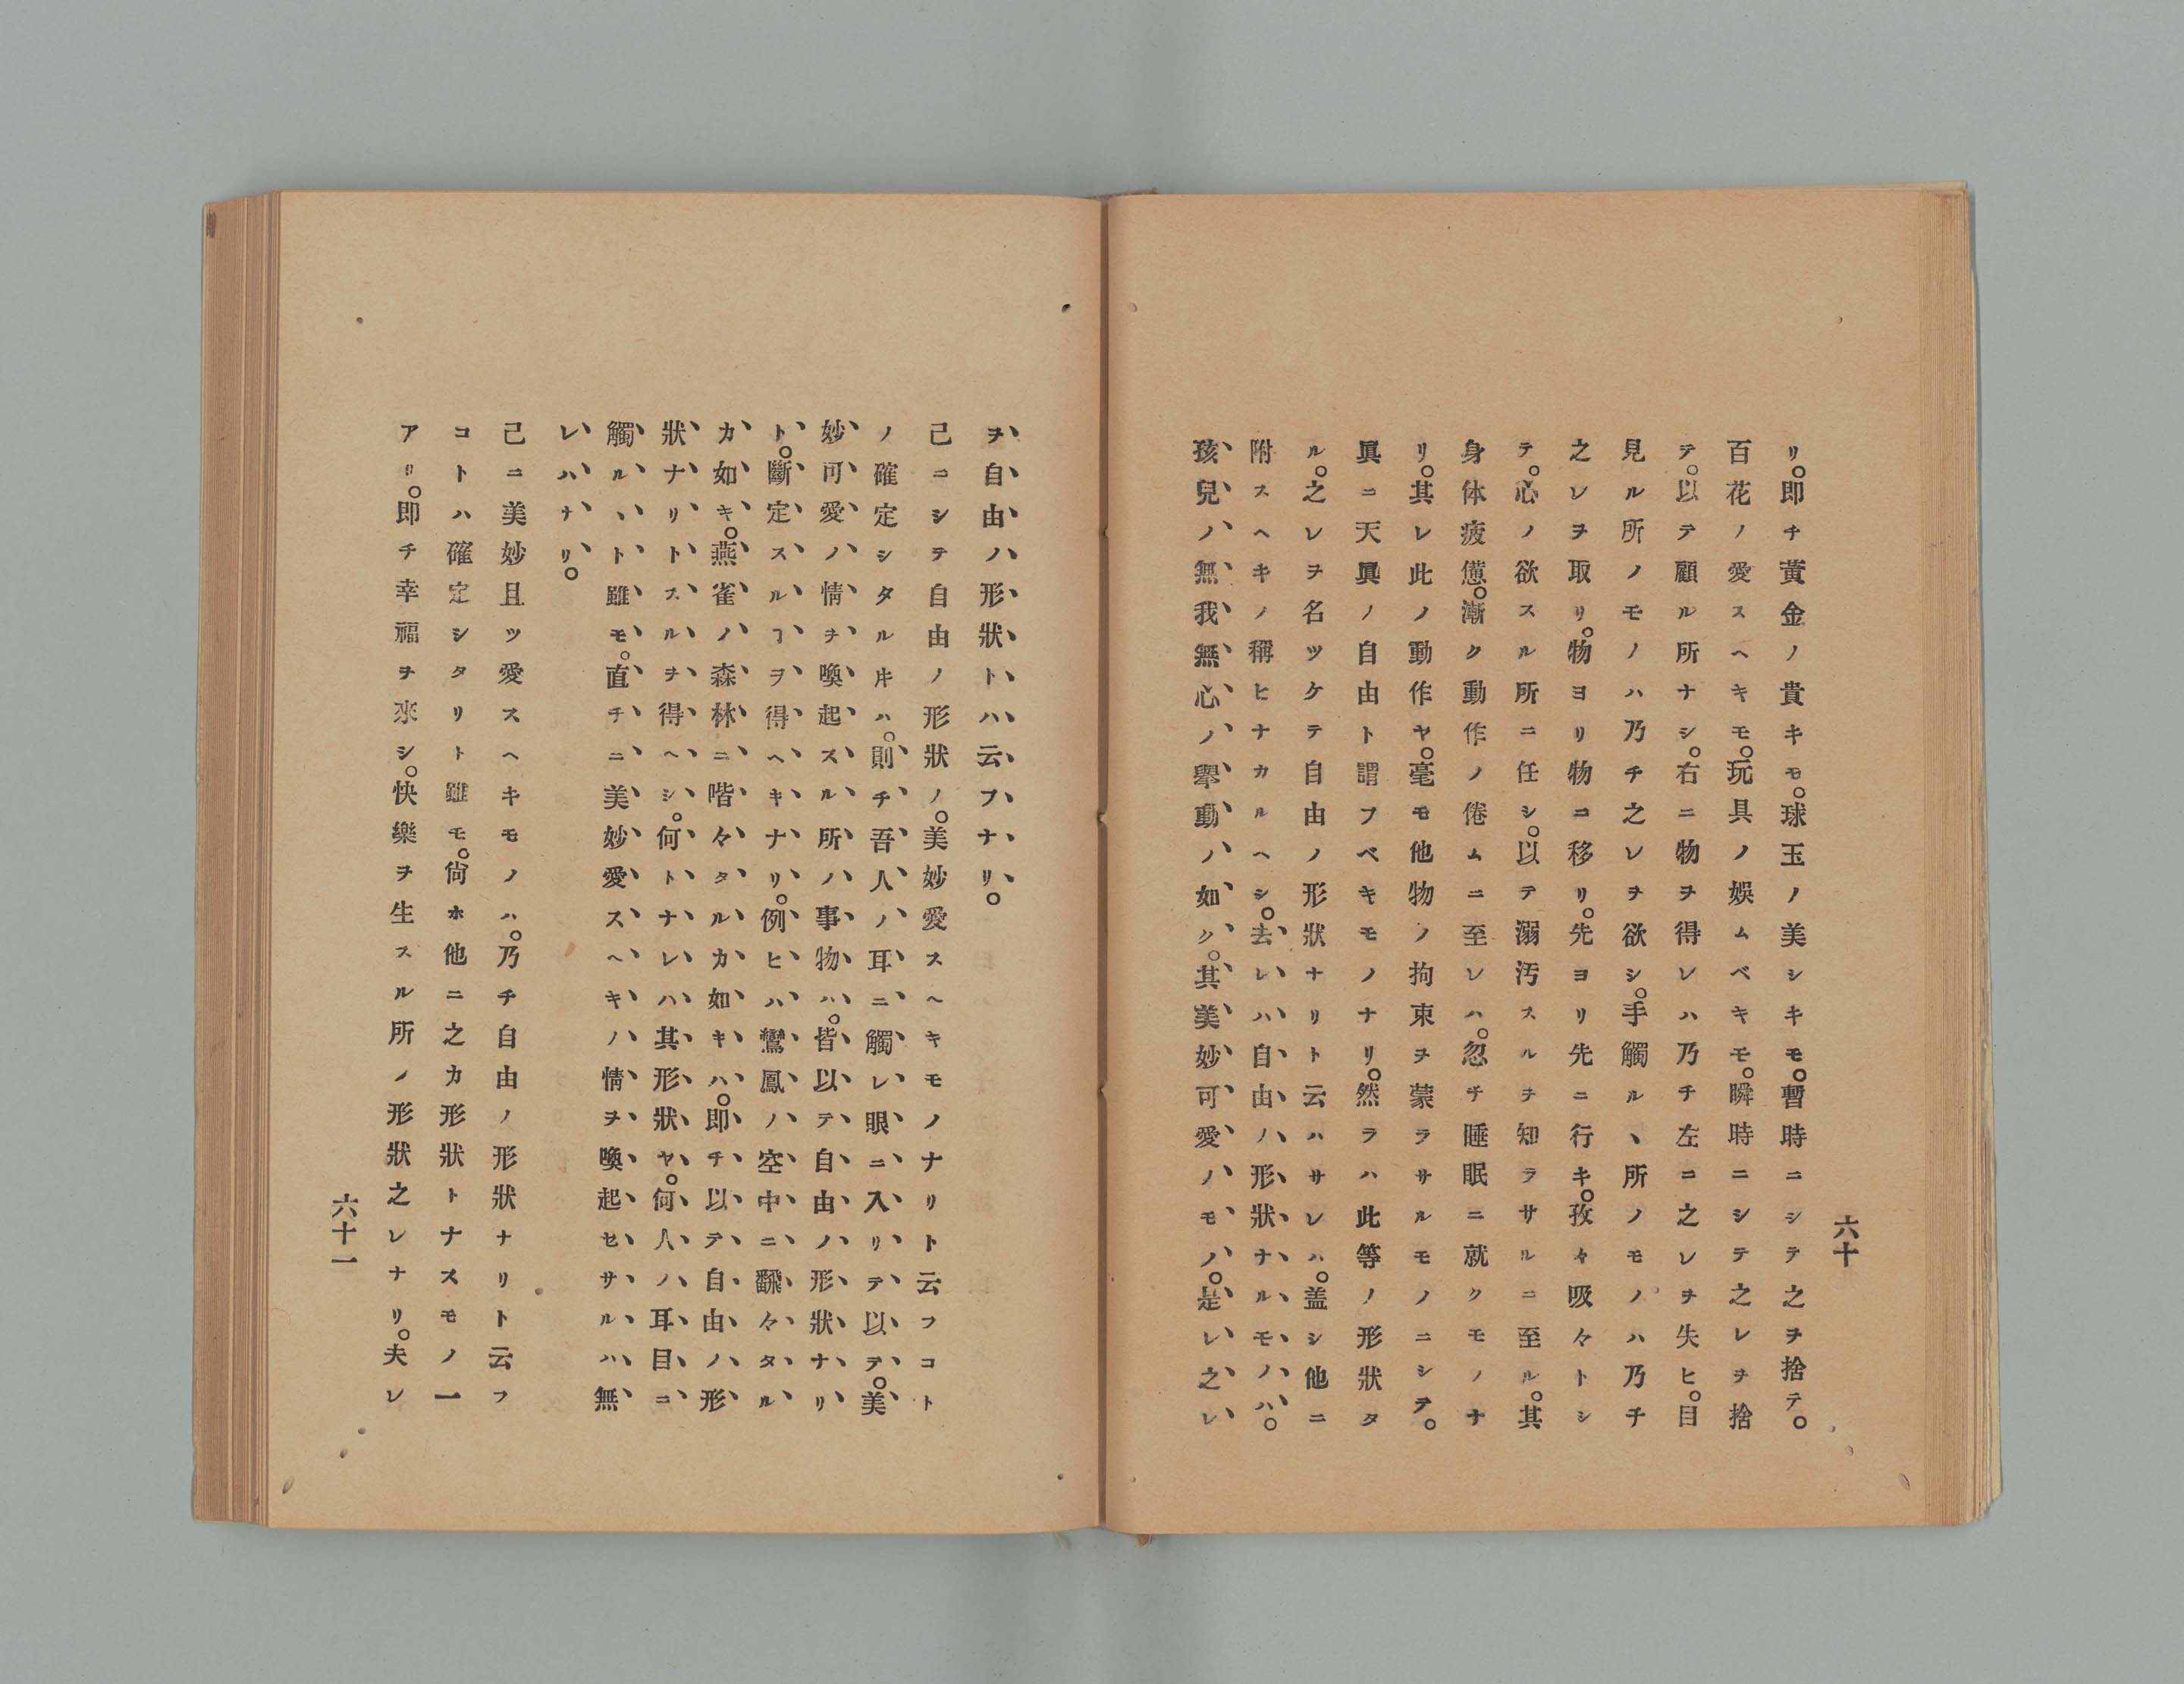 リ。即チ黄金ノ貴キモ。球玉ノ美シキモ。暫時ニシテ之ヲ捨テ。
百花ノ愛スヘキモ。玩具ノ娯ムベキモ。瞬時ニシテ之レヲ捨
テ。以テ顧ル所ナシ。右ニ物ヲ得レハ乃チ左ニ之レヲ失ヒ。目
見ル所ノモノハ乃チ之レヲ欲シ。手觸ルヽ所ノモノハ乃チ
之レヲ取リ。物ヨリ物ニ移リ。先ヨリ先ニ行キ。孜々吸々トシ
テ。心ノ欲スル所ニ任シ。以テ溺汚スルヲ知ラサルニ至ル。其
身体疲憊。漸ク動作ノ倦ムニ至レハ。忽チ睡眠ニ就クモノナ
リ。其レ此ノ動作ヤ。毫モ他物ノ拘束ヲ蒙ラサルモノニシテ。
眞ニ天眞ノ自由ト謂フベキモノナリ。然ラハ此等ノ形狀タ
ル。之レヲ名ツケテ自由ノ形狀ナリト云ハサレハ。盖シ他ニ
附スヘキノ稱ヒナカルヘシ。去レハ自由ノ形狀ナルモノハ。
孩兒ノ無我無心ノ擧動ノ如ク。其美妙可愛ノモノ。是レ之レ
六十
ヲ自由ハ形狀トハ云フナリ。
己ニシテ自由ノ形狀ノ。美妙愛スヘキモノナリト云フコト
ノ確定シタル𪜈ハ。則チ吾人ノ耳ニ觸レ眼ニ入リテ以テ。美
妙可愛ノ情ヲ喚起スル所ノ事物ハ。皆以テ自由ノ形狀ナリ
ト。斷定スルヿヲ得ヘキナリ。例ヒハ鸞鳳ノ空中ニ飜々タル
カ如キ。燕雀ノ森林ニ喈々タルカ如キハ。即チ以テ自由ノ形
狀ナリトスルヲ得ヘシ。何トナレハ其形狀ヤ。何人ノ耳目ニ
觸ルヽト雖モ。直チニ美妙愛スヘキノ情ヲ喚起セサルハ無
レハナリ。
己ニ美妙且ツ愛スヘキモノハ。乃チ自由ノ形狀ナリト云フ
コトハ確定シタリト雖モ。尙ホ他ニ之カ形狀トナスモノ一
アリ。即チ幸福ヲ來シ。快樂ヲ生スル所ノ形狀之レナリ。夫レ
六十一